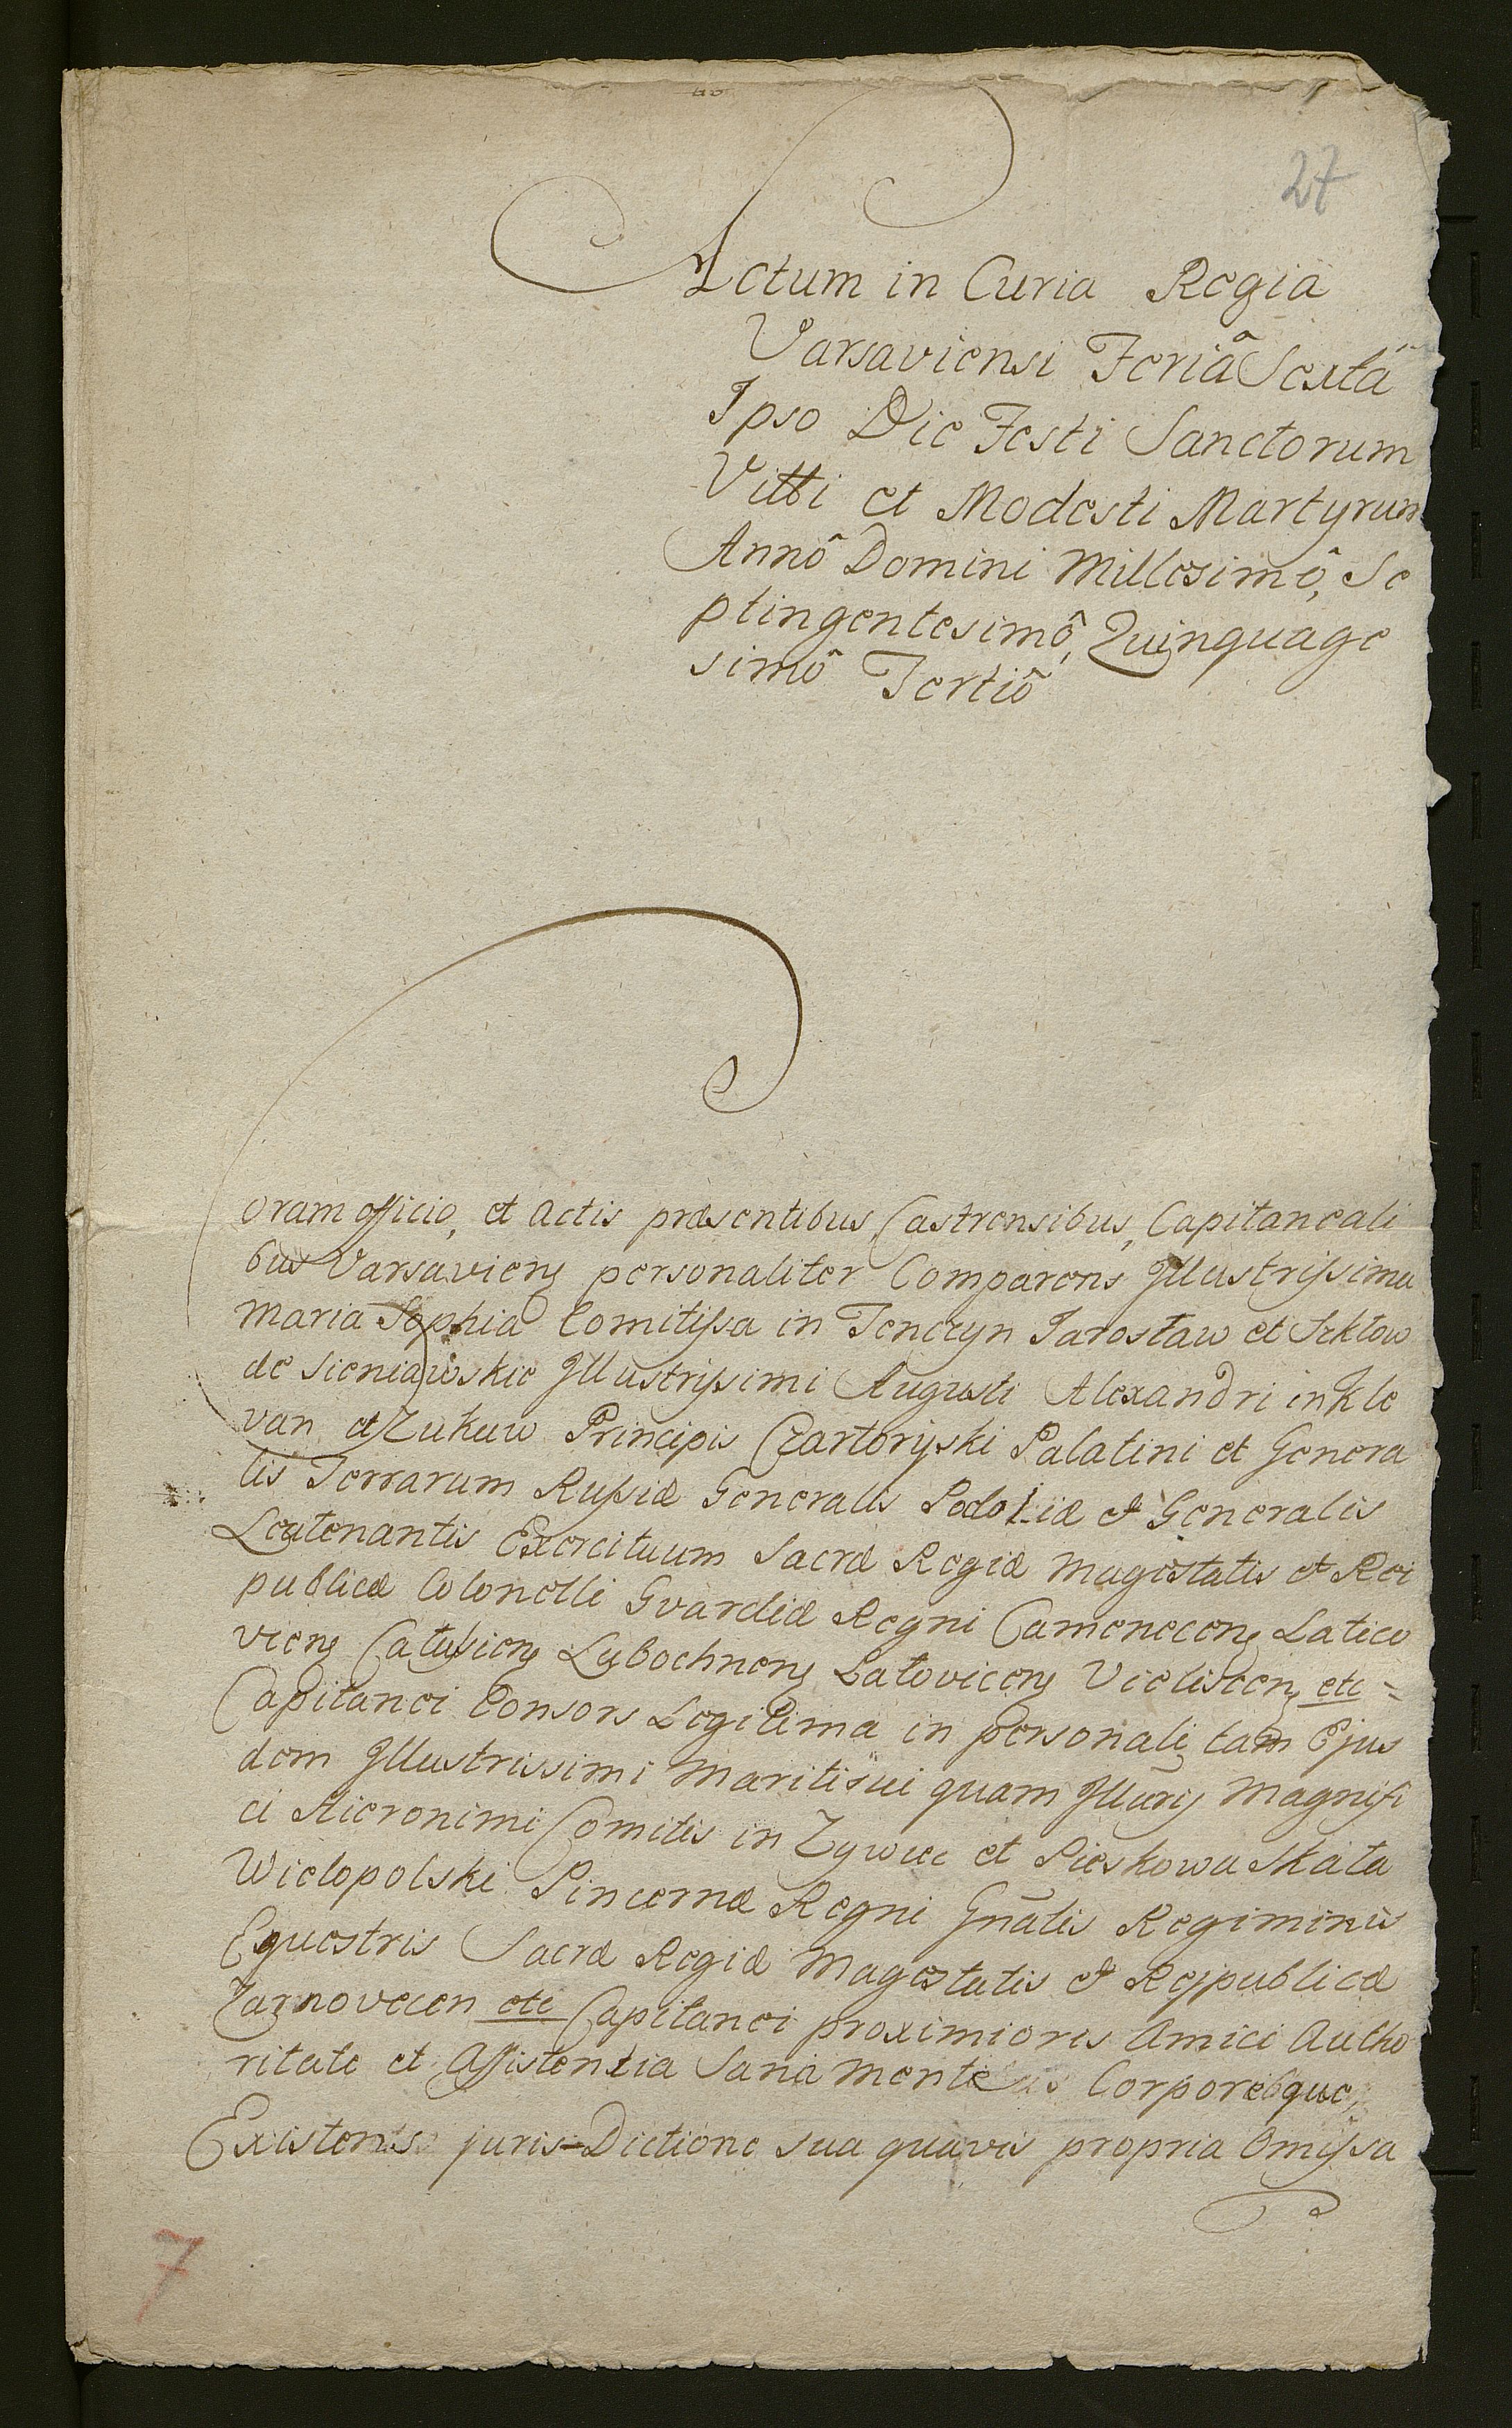 27
Actum in Curia Regia
Varsaviensi Feriâ Sextâ
Ipso Die Festi Sanctorum
Vitti et Modesti Martyrum
Annô Domini Millesimô, Se
ptingentesimô, Quinquage
simô Tertiô
Coram officio, et Actis præsentibus Castrensibus, Capitaneali
bus Varsavien personaliter Comparens Illustrissima
Maria Sophia Comitissa in Tenczyn Jarosław et Szkłow
de Sieniawskie Illustrissimi Augusti Alexandri in Kle
van et Zukuw Principis Czartoryski Palatini et Genera
lis Terrarum Russiæ Generalis Podoliæ et Generalis
Leutenantis Exercituum Sacræ Regiæ Magestatis et Rei
publicæ Colonelli Gvardiæ Regni Camenecen Latico
vien Calussien Lubochnen Latovicen Vielisten etc =
Capitanei Consors Legitima in personali tam Ejus
dem Illustrissimi Mariti sui quam Illūris Magnifi
ci Hieronimi Comitis in Zywiec et Pieskowa Skała
Wielopolski Pincernæ Regni Gnālis Regiminis
Equestris Sacræ Regiæ Magestatis et Reipublicæ
Zarnovecen etc Capitanei proximioris Amici Autho
ritate et Assistentia Sana Mente Corporeque
Existens juris-Dictione sua quavis propria Omissa
7